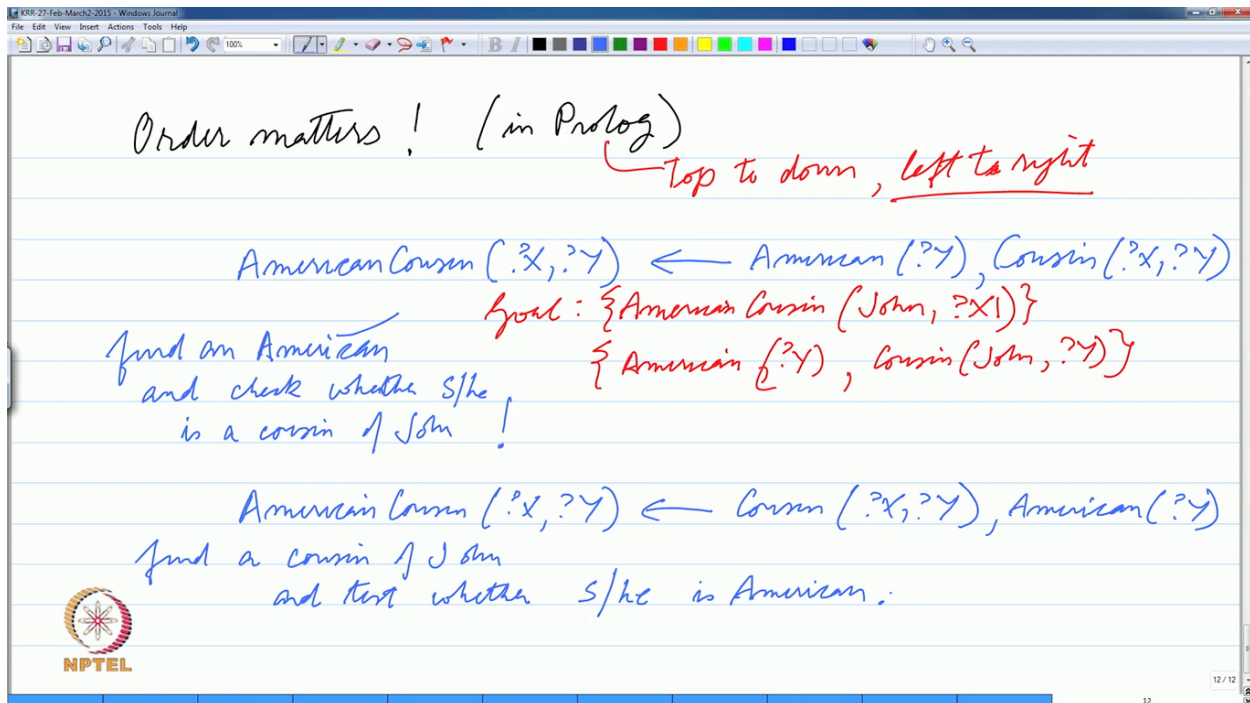 KRR-27-Feb-March2-2015 - Windows Journal
File Edit View Insert Actions Tools Help
100%
B I
Order matters ! (in Prolog)
Top to down, left to right
AmericanCousin (?X, ?Y) ← American (?Y), Cousin (?X, ?Y)
Goal : {American Cousin (John, ?X1)}
find an American
{American (?Y), Cousin (John, ?Y)}
and check whether s/he
is a cousin of John !
American Cousin (?X, ?Y) ← Cousin (?X, ?Y), American (?Y)
find a cousin of John
and test whether s/he is American.
NPTEL
12 / 12
12